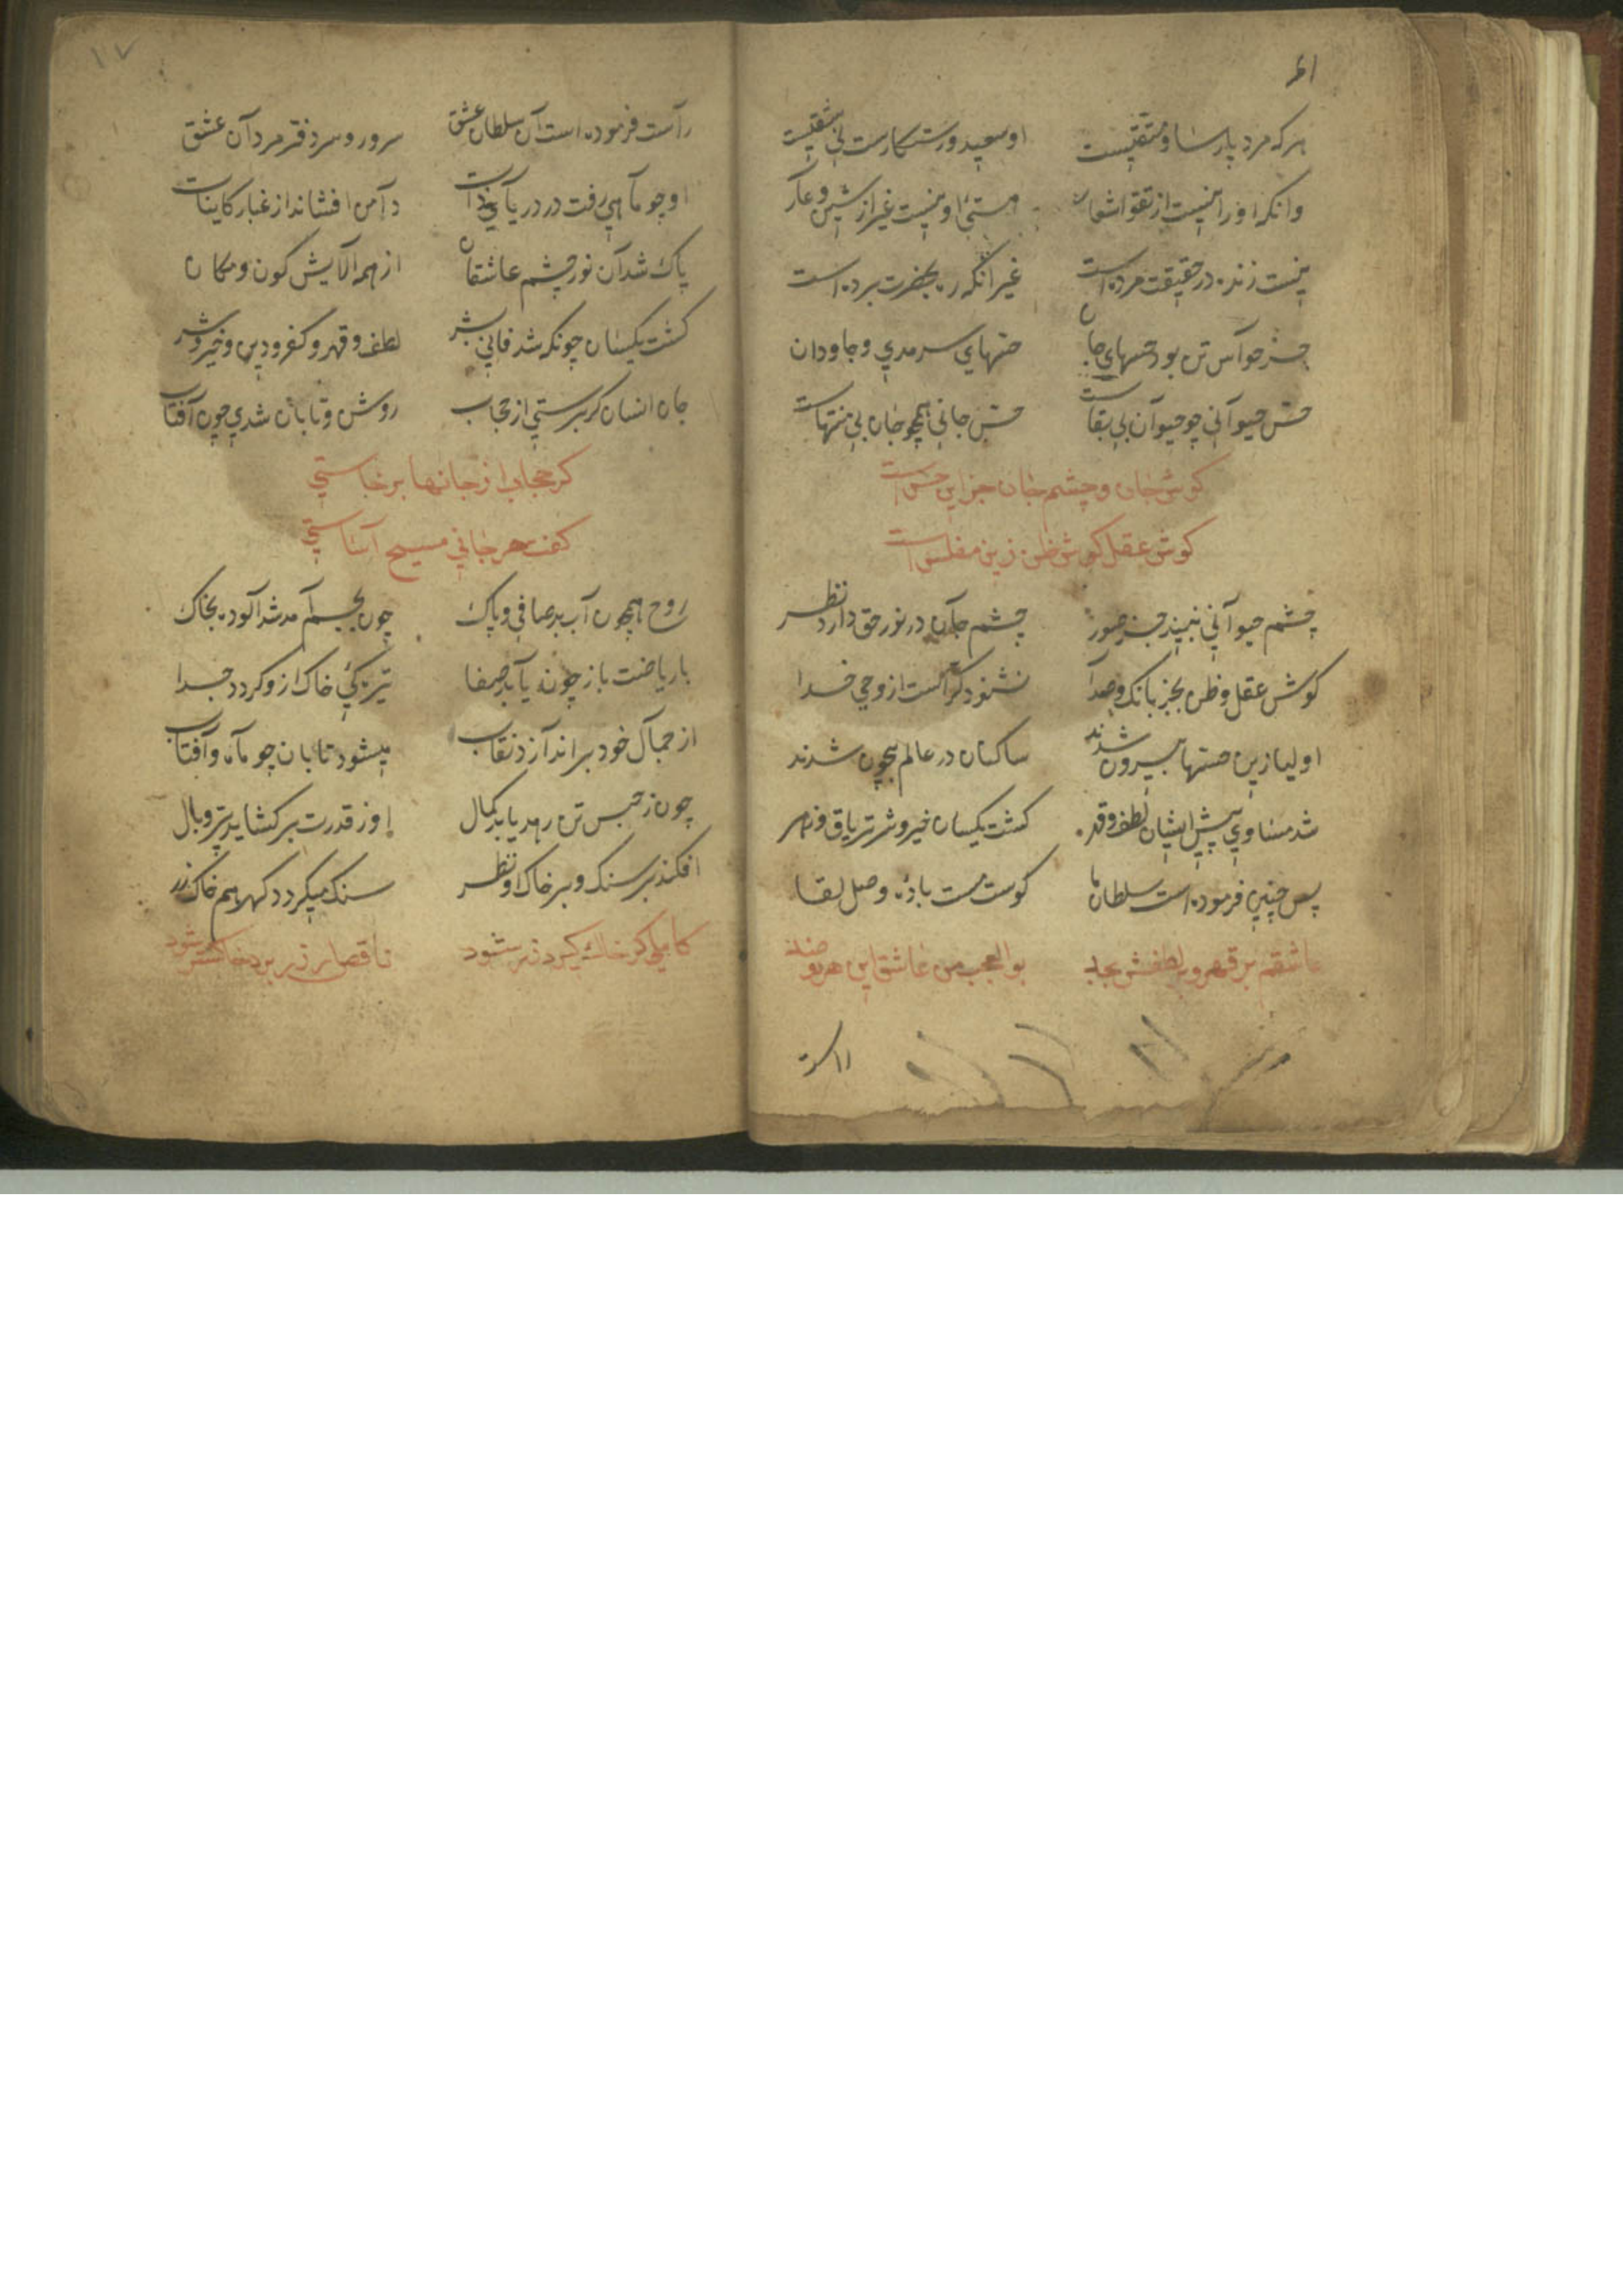 هرکه مرد پارسا و متقیست او سعید و رستکارست بی شقیست
وانکه او را نیست از تقوا شعار هستئ او نیست غیر از شین و عار
نیست زنده در حقیقت مرده است غیر آنکه ره بحضرت برده است
جز حواس تن بود حسهای جان حسهای سرمدی و جاودان
حس حیوانی چو حیوان بی بقاست حس جانی همچو جان بی منتهاست
کوش جان و چشم جان جز این حس است
کوش عقل کوش ظن زین مفلس است
چشم حیوانی نبیند جز صور چشم جان در نور حق دارد نظر
کوش عقل و ظن بجز بانک و صدا نشنود کر است از وحی خدا
اولیا زین حسها بیرون شدند ساکنان در عالم بیچون شدند
شد مساوی پیش ایشان لطف و قهر کشت یکسان خیر و شر تریاق و زهر
پس چنین فرموده است سلطان ما کوست مست بادۀ وصل لقا
عاشقم بر قهر و بر لطفش بجد بوالعجب من عاشق این هر دو ضد
راست
١٧
راست فرموده است آن سلطان عشق سرور و سردفتر مردان عشق
او چو ماهی رفت در دریای ذات دامن افشاند از غبار کاینات
پاک شد آن نور چشم عاشقان از همه آلایش کون و مکان
کشت یکسان چونکه شد فانی بشر لطف و قهر و کفر و دین و خیر و شر
جان انسان کر برستی از حجاب روشن و تابان شدی چون آفتاب
کر حجاب از جانها برخاستی
کفت هر جانی مسیح آساستی
روح همچون آب بد صافی و پاک چون بجسم آمد شد آلوده بخاک
با ریاضت باز چون یابد صفا تیرکئ خاک ازو کردد جدا
از جمال خود براندازد نقاب میشود تابان چو ماه و آفتاب
چون ز حبس تن رهد یابد کمال او ز قدرت برکشاید پر و بال
افکند بر سنک و بر خاک او نظر سنک میکردد کهر هم خاک زر
کاملی کر خاک کیرد زر شود ناقص ار زر برد خاکستر شود